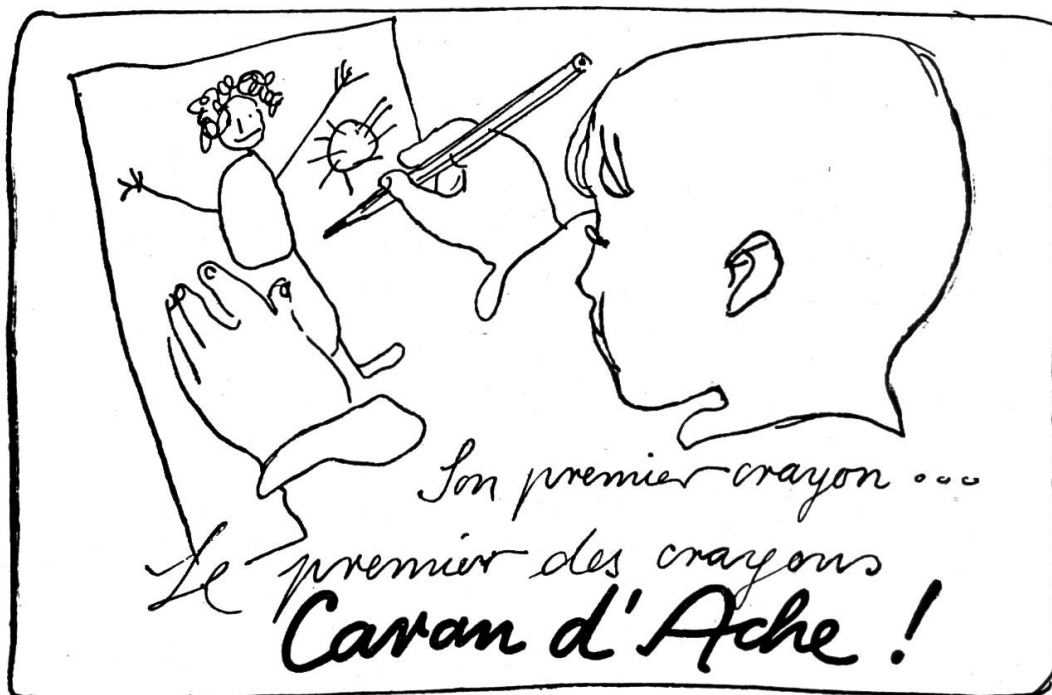 Son premier crayon ...
Le premier des crayons
Caran d'Ache !